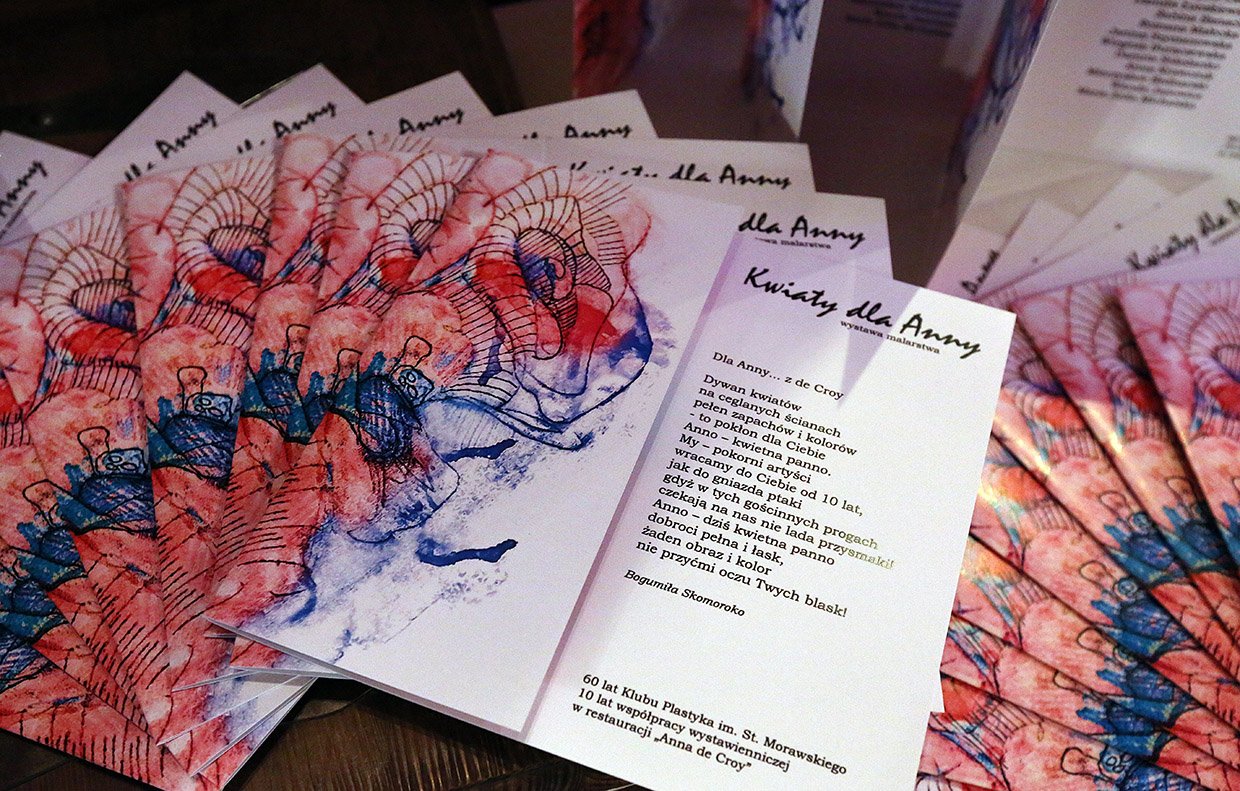 dla Anny
dla Anny
dla Anny
dla Anny
Kwiaty dla Anny
dla Anny
malarstwa
Kwiaty dla Anny
wystawa malarstwa
Dla Anny... z de Croy
Dywan kwiatów
na ceglanych ścianach
pełen zapachów i kolorów
- to pokłon dla Ciebie
Anno – kwietna panno.
My – pokorni artyści
wracamy do Ciebie od 10 lat,
jak do gniazda ptaki
gdyż w tych gościnnych progach
czekają na nas nie lada przysmaki!
Anno – dziś kwietna panno
dobroci pełna i łask,
żaden obraz i kolor
nie przyćmi oczu Twych blask!
Bogumiła Skomoroko
60 lat Klubu Plastyka im. St. Morawskiego
10 lat współpracy wystawienniczej
w restauracji „Anna de Croy”
Kwiaty dla